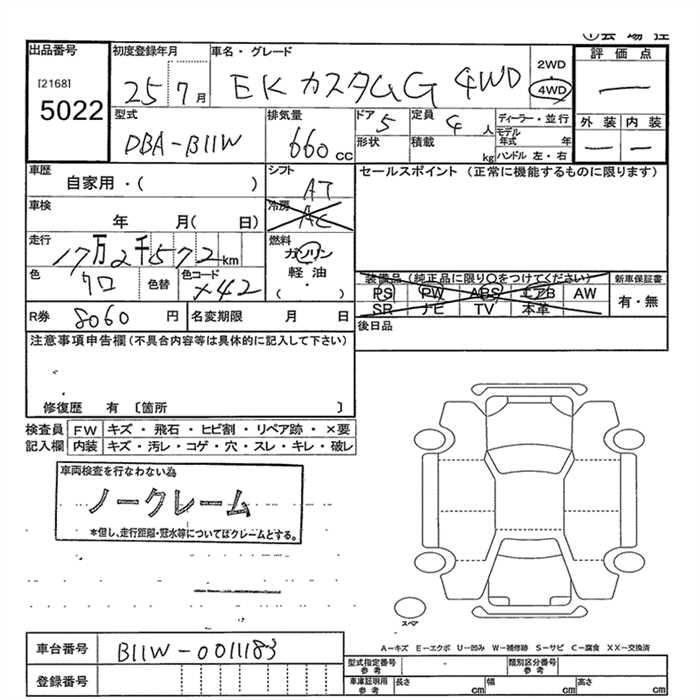 ①会場控
出品番号
[2168]
5022
初度登録年月
25 7 月
車名・グレード
EKカスタムG 4WD
2WD
4WD
評価点
—
外装 内装
— —
型式
DBA-B11W
排気量
660 cc
ドア 5
形状
定員 4 人
積載 kg
ディーラー・並行
モデル年式 年
ハンドル 左・右
車歴
自家用・( )
シフト
AT
セールスポイント (正常に機能するものに限ります)
車検
年 月( 日)
冷房
AC
走行
17万2千572km
燃料
ガソリン
軽油
・( )
色
クロ
色替
色コード
X42
装備品 (純正品に限り○をつけてください)
PS PW ABS エアB AW
SR ナビ TV 本革
新車保証書
有・無
R券 8060 円
名変期限 月 日
後日品
注意事項申告欄(不具合内容等は具体的に記入して下さい)
修復歴 有 〔箇所 〕
検査員 FW キズ・飛石・ヒビ割・リペア跡・×要
記入欄 内装 キズ・汚レ・コゲ・穴・スレ・キレ・破レ
車両検査を行なわない為
ノークレーム
*但し、走行距離・冠水等についてはクレームとする。
スペア
A-キズ E-エクボ U-凹み W-補修跡 S-サビ C-腐食 XX-交換済
車台番号 B11W-0011183
登録番号
型式指定番号 参考 - 類別区分番号 参考
車庫証明用 参考 長さ cm 幅 cm 高さ cm